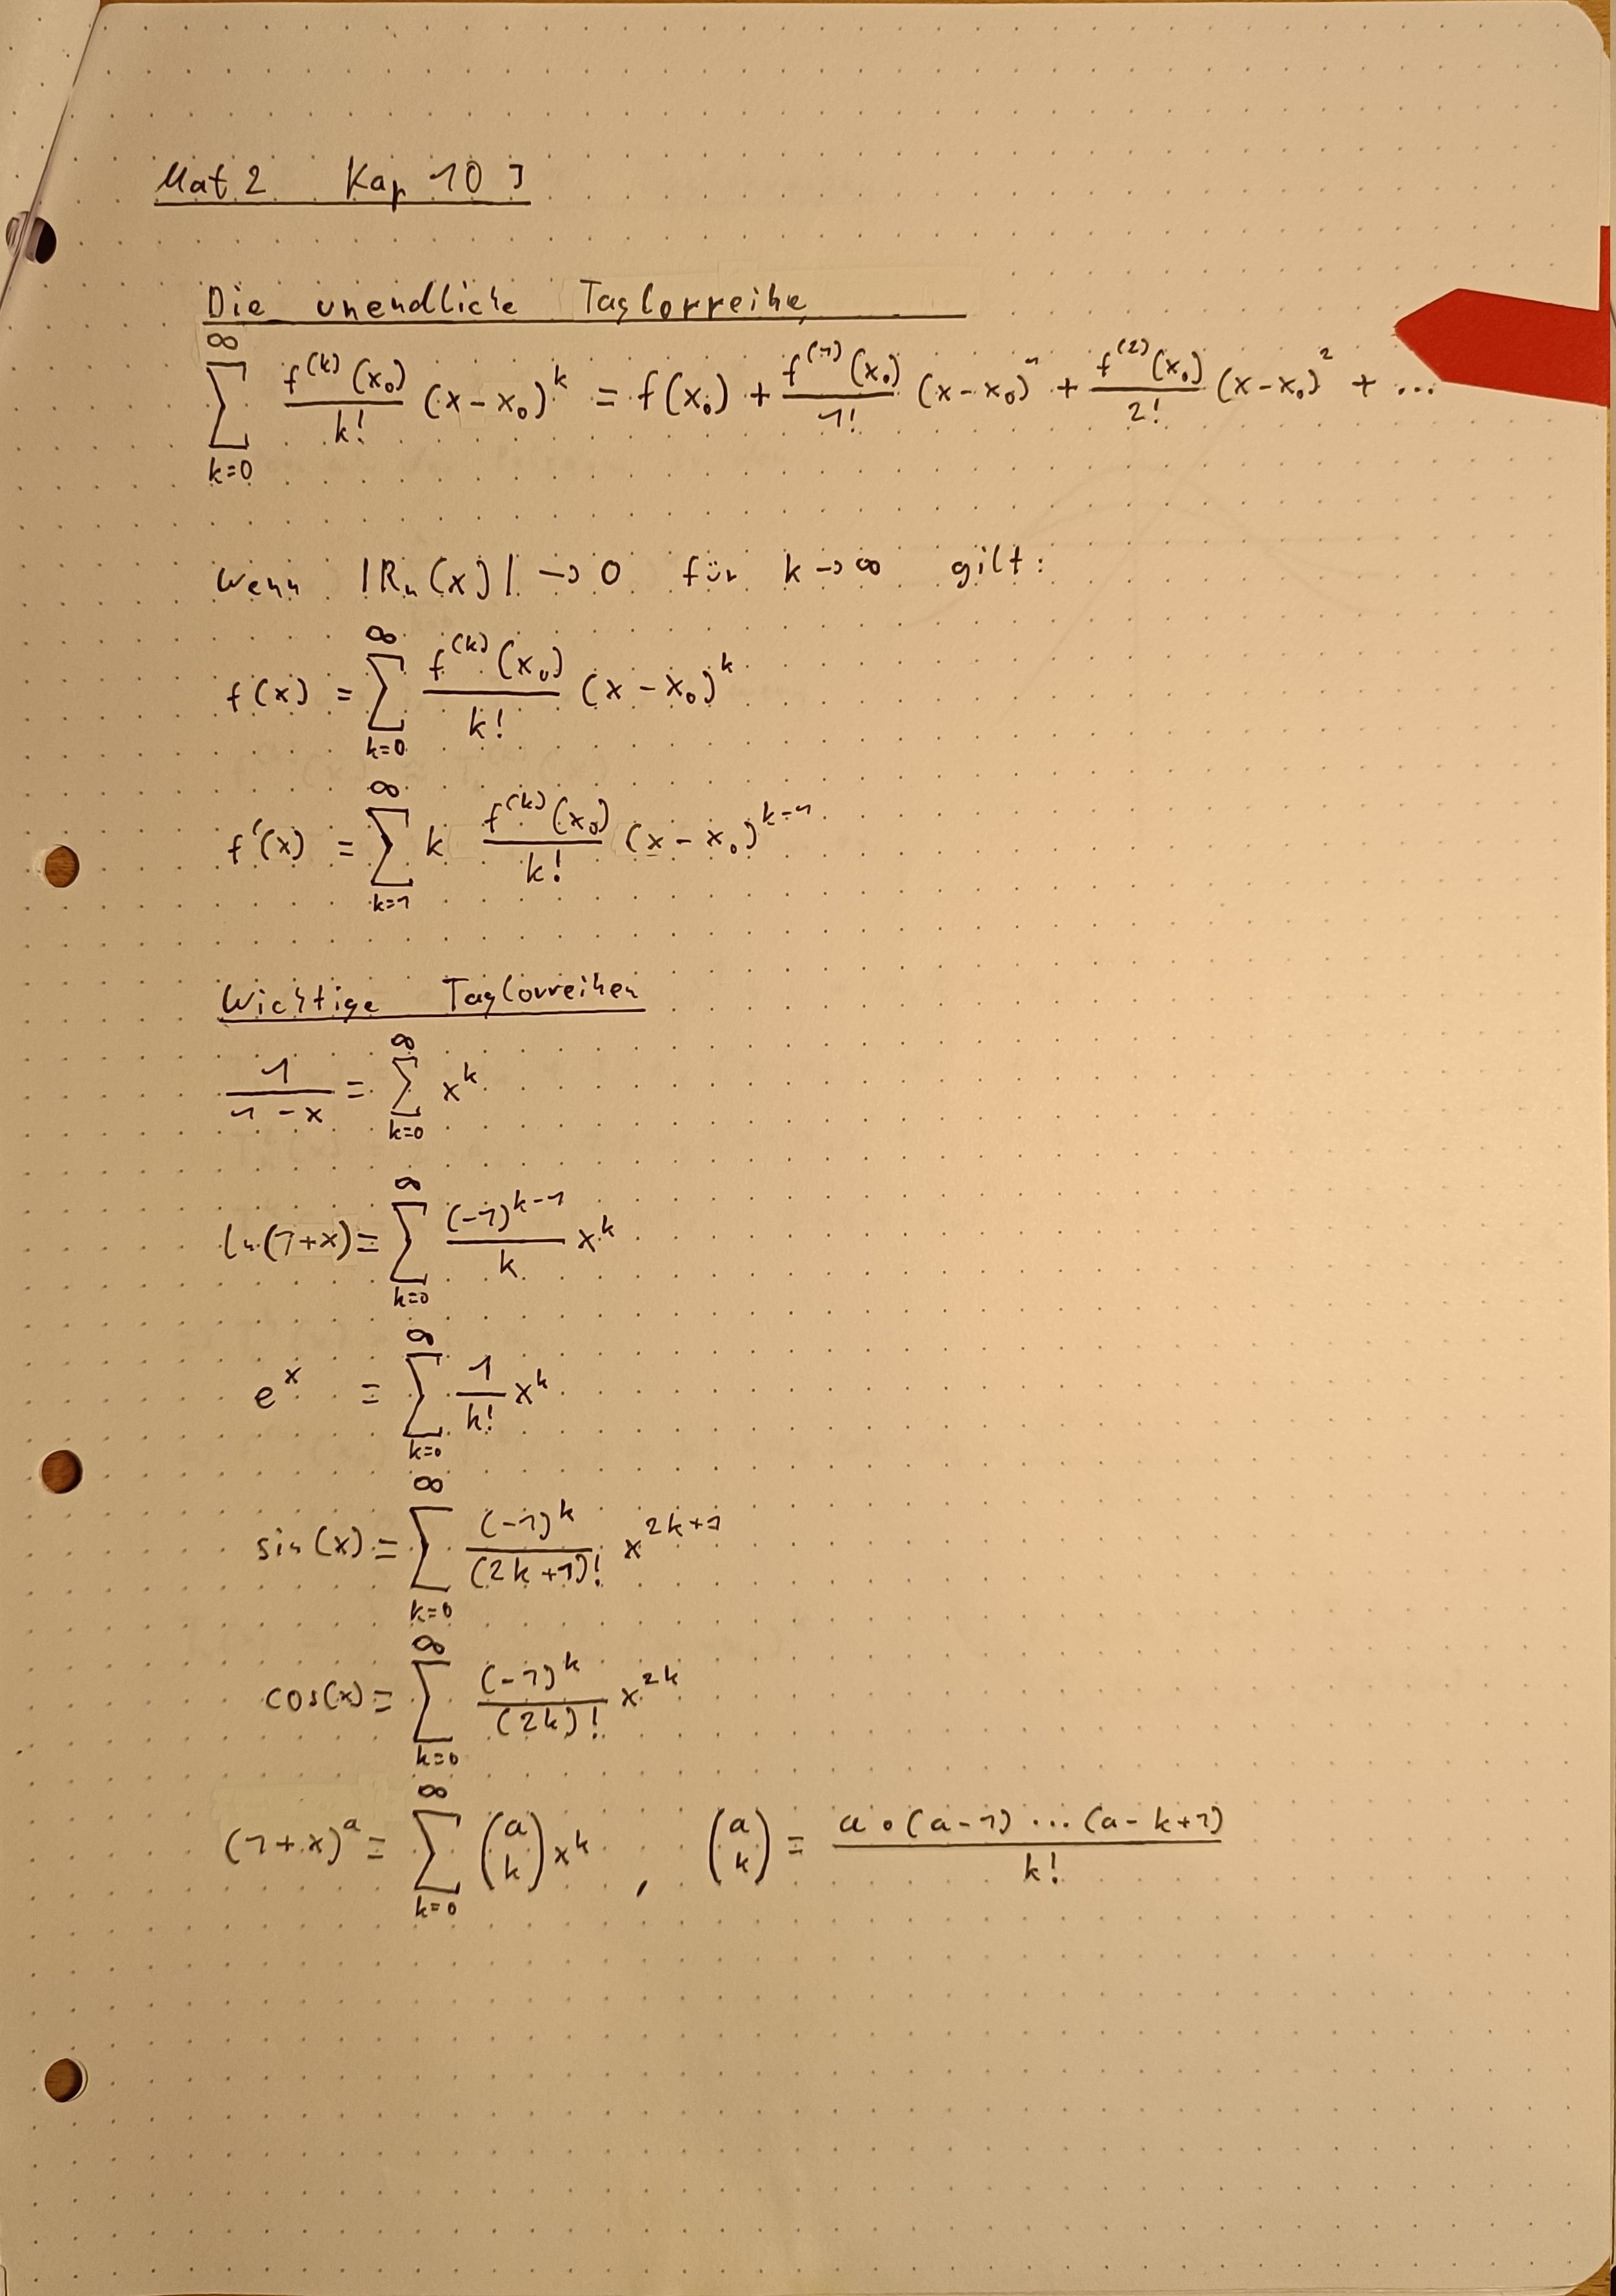 Mat 2 Kap 10 3
Die unendliche Taylorreihe
∞∑k=0 f⁽ᵏ⁾(x₀)/k! (x-x₀)ᵏ = f(x₀) + f⁽¹⁾(x₀)/1! (x-x₀)¹ + f⁽²⁾(x₀)/2! (x-x₀)² + ...
Wenn |Rₙ(x)| → 0 für k → ∞ gilt:
f(x) = ∞∑k=0 f⁽ᵏ⁾(x₀)/k! (x-x₀)ᵏ
f'(x) = ∞∑k=1 k f⁽ᵏ⁾(x₀)/k! (x-x₀)ᵏ⁻¹
Wichtige Taylorreihen
1/(1-x) = ∞∑k=0 xᵏ
ln(1+x) = ∞∑k=0 (-1)ᵏ⁻¹/k xᵏ
eˣ = ∞∑k=0 1/k! xᵏ
sin(x) = ∞∑k=0 (-1)ᵏ/(2k+1)! x²ᵏ⁺¹
cos(x) = ∞∑k=0 (-1)ᵏ/(2k)! x²ᵏ
(1+x)ᵃ = ∞∑k=0 (a k) xᵏ , (a k) = a•(a-1) ... (a-k+1)/k!